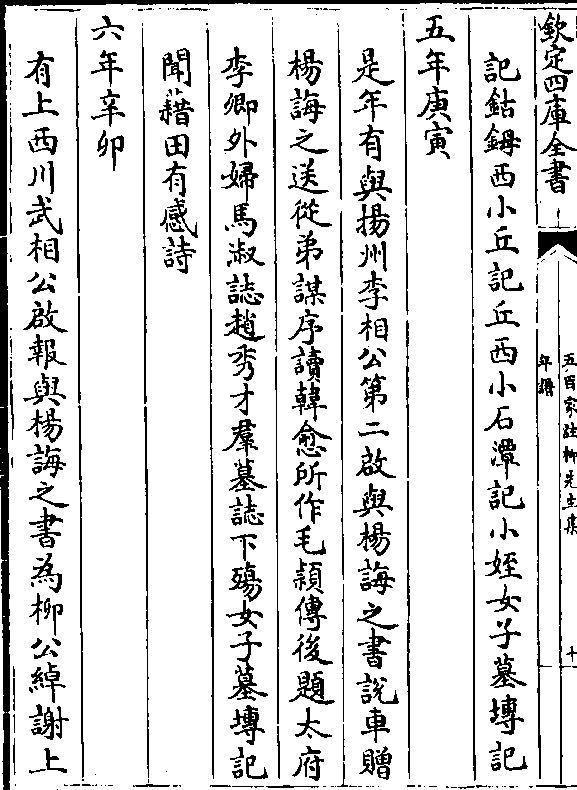 欽定四庫全書
五百家註柳先生集
年譜
十
記鈷鉧西小丘記丘西小石潭記小姪女子墓塼記
五年庚寅
是年有與揚州李相公第二啟與楊誨之書說車贈
楊誨之送從弟謀序讀韓愈所作毛頴傳後題太府
李卿外婦馬淑誌趙秀才羣墓誌下殤女子墓塼記
聞藉田有感詩
六年辛卯
有上西川武相公啟報與楊誨之書為柳公綽謝上